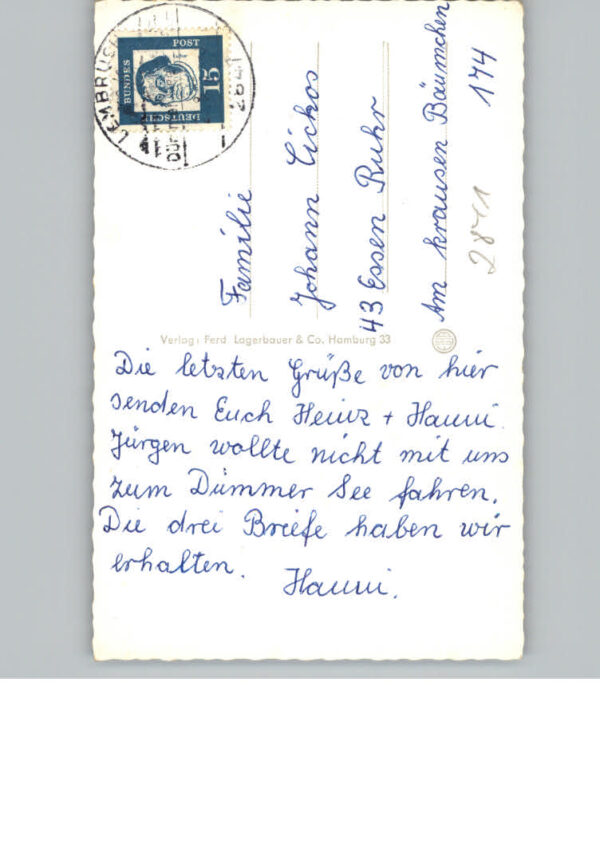 LEMBRUCH
2841
DEUTSCHE
BUNDES
POST
15
Familie
Johann Cichos
43 Essen Ruhr
Am krausen Bäumchen
174
2841
Verlag: Ferd. Lagerbauer & Co. Hamburg 33
Die letzten Grüße von hier
senden Euch Heinz + Hanni.
Jürgen wollte nicht mit uns
zum Dümmer See fahren.
Die drei Briefe haben wir
erhalten. Hanni.